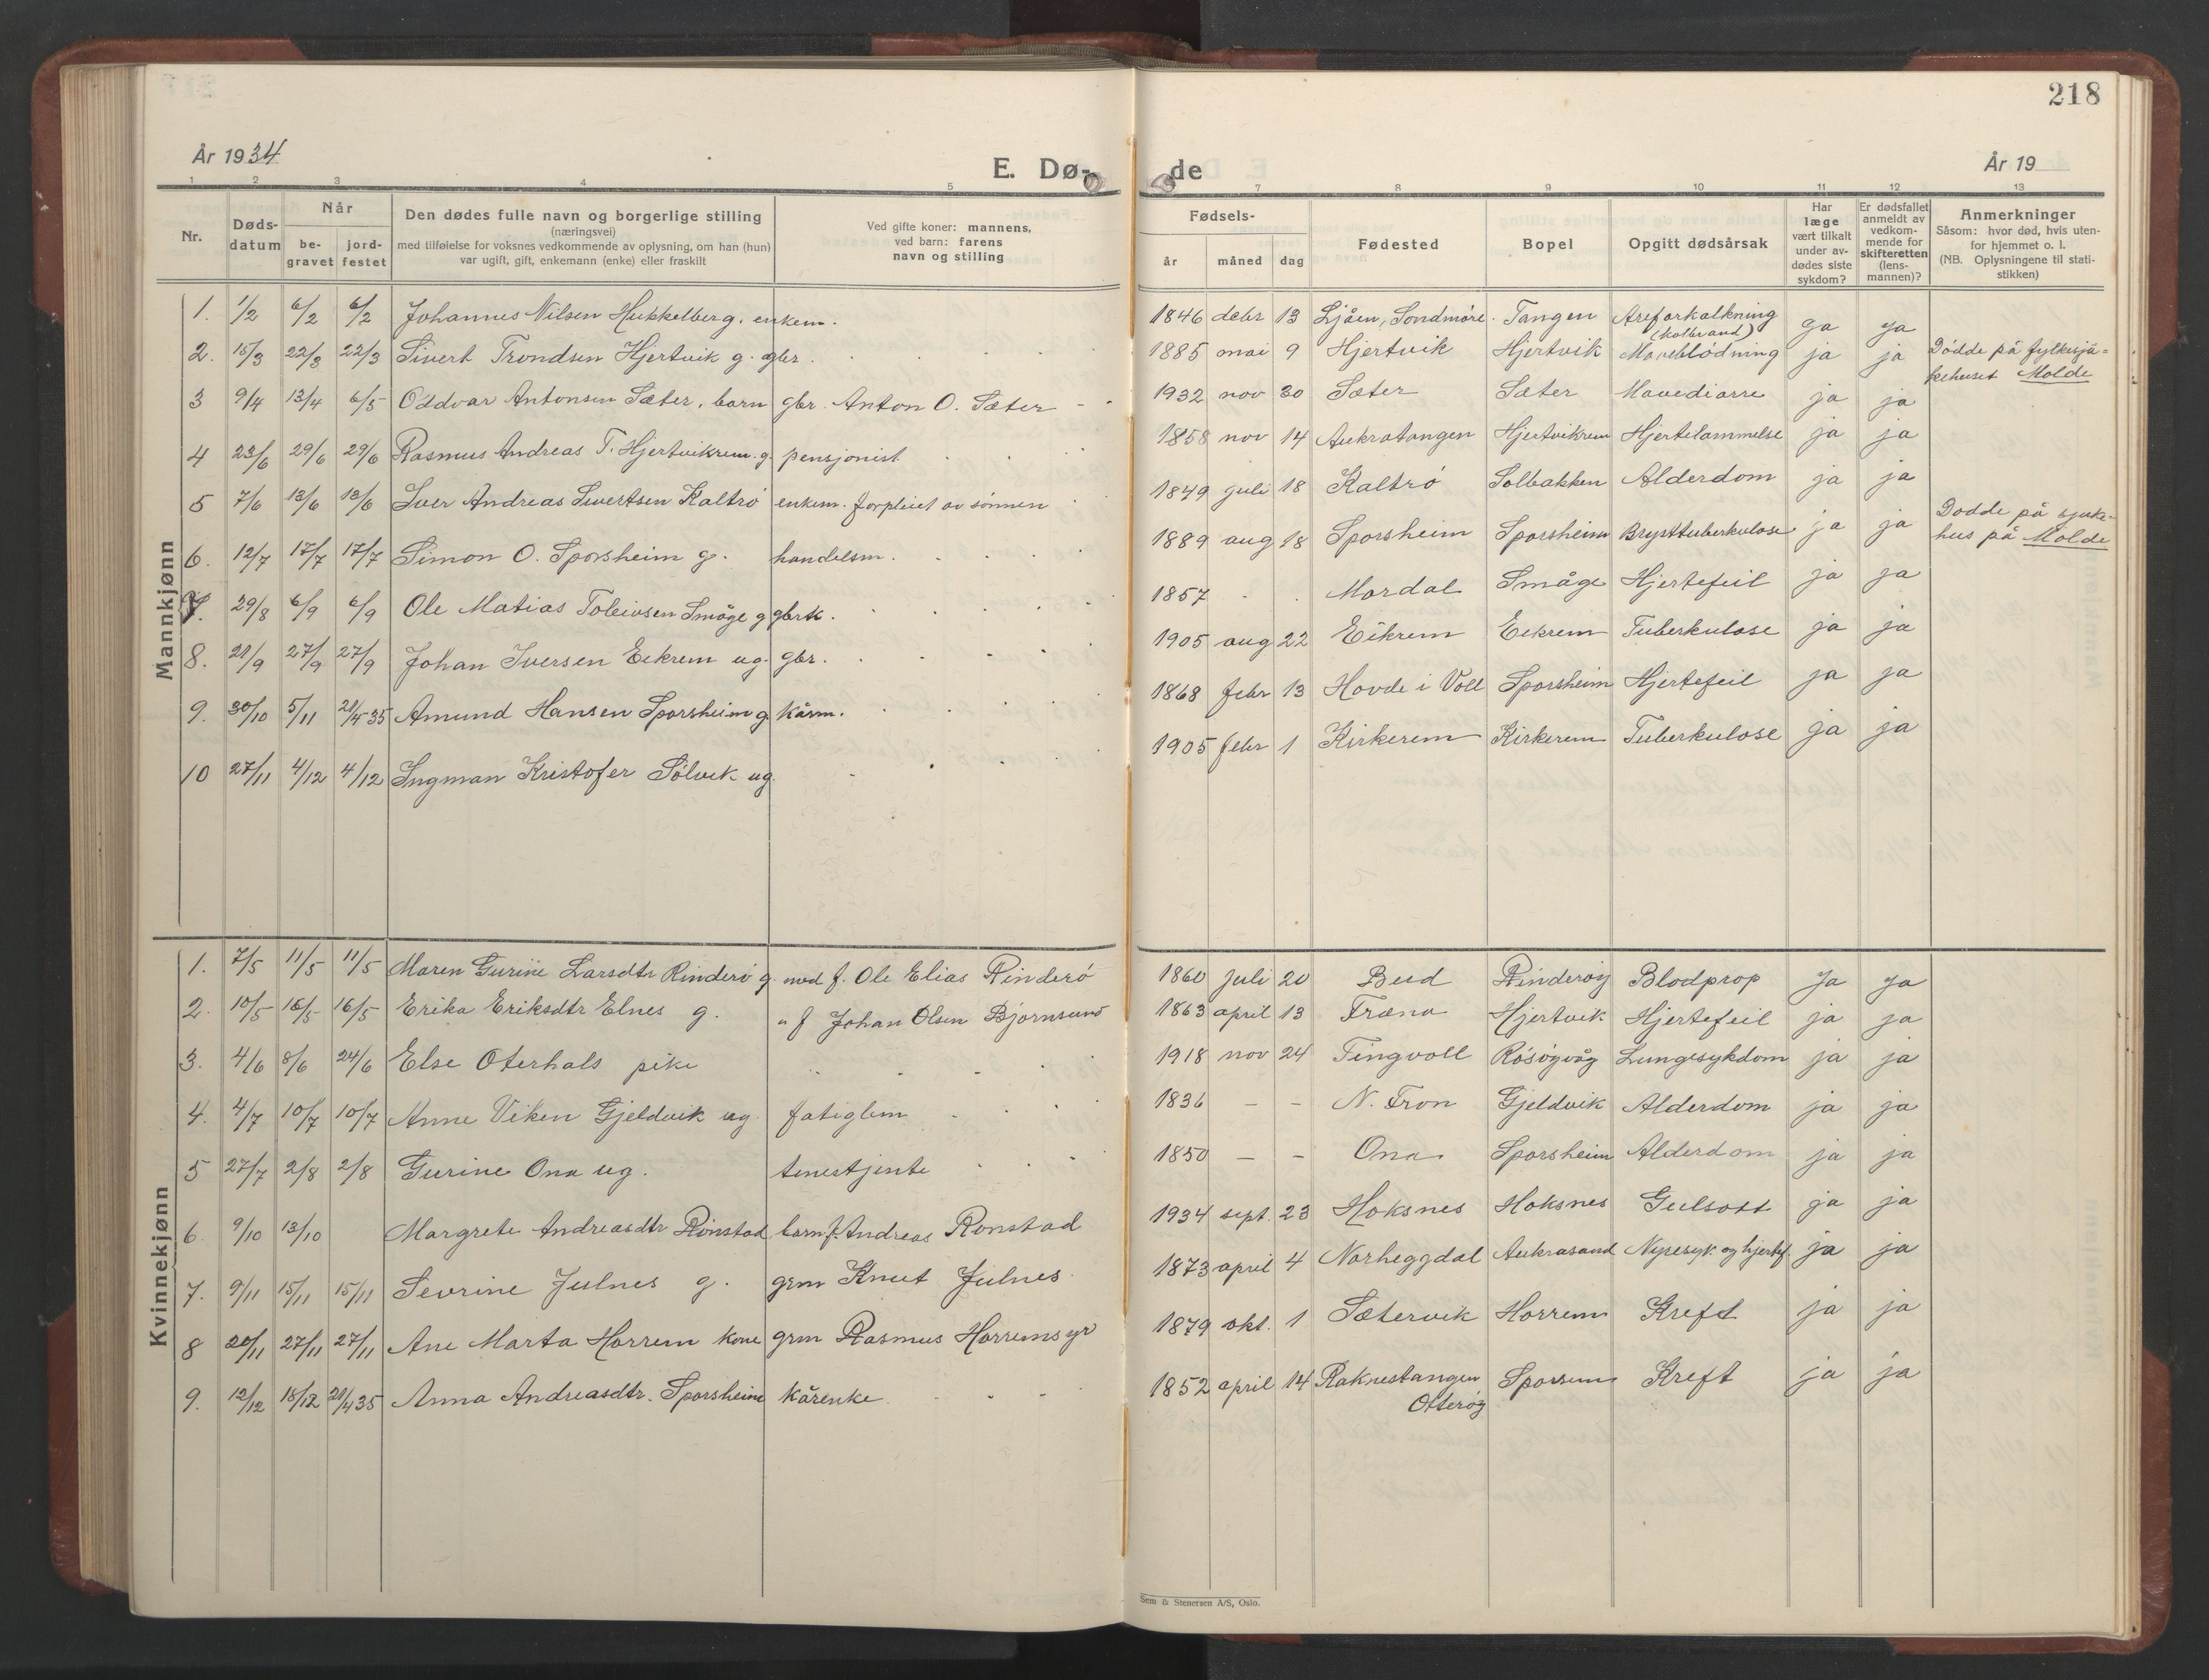 218
År 1934
E. Dø-
de
År 19
1 2 3 4 5
7 8 9 10 11 12 13
Nr.
Døds-
datum
Når
be-
gravet
jord-
festet
Den dødes fulle navn og borgerlige stilling
(næringsvei)
med tilføielse for voksnes vedkommende av oplysning, om han (hun)
var ugift, gift, enkemann (enke) eller fraskilt
Ved gifte koner: mannens,
ved barn: farens
navn og stilling
Fødsels-
år måned dag
Fødested
Bopel
Opgitt dødsårsak
Har
læge
vært tilkalt
under av-
dødes siste
sykdom?
Er dødsfallet
anmeldt av
vedkom-
mende for
skifteretten
(lens-
mannen)?
Anmerkninger
Såsom: hvor død, hvis uten-
for hjemmet o. l.
(NB. Oplysningene til stati-
stikken)
Mannkjønn
1. 1/2 6/2 6/2 Johannes Nilsen Hukkelberg. enkem.
1846 debr 13 Ljåen, Søndmøre. Tangen Areforkalkning (kolbrand) ja ja
2. 15/3 22/3 22/3 Sivert Trondsen Hjertvik g. gbr.
1885 mai 9 Hjertvik Hjertvik Maveblødning ja ja Dødde på fylkesjú-
kehuset Molde
3 9/4 13/4 6/5 Oddvar Antonsen Sæter, barn gbr. Anton O. Sæter
1932 nov 30 Sæter Sæter Mavediarre ja ja
4 23/6 29/6 29/6 Rasmus Andreas T. Hjertvikrem. g. pensjonist
1858 nov 14 Aukratangen Hjertvikrem Hjertelammelse ja ja
5 7/6 13/6 13/6 Iver Andreas Sivertsen Kaltrø enkem. forpleiet av sønnen
1849 juli 18 Kaltrø Solbakken Alderdom ja ja
6. 12/7 17/7 17/7 Simon O. Sporsheim g. handelsm.
1889 aug 18 Sporsheim Sporsheim Brysttuberkulose ja ja Dødde på sjuke-
hus på Molde
7. 29/8 6/9 6/9 Ole Matias Toleivsen Småge g gbrk.
1857 Mordal Småge Hjertefeil ja ja
8. 21/9 27/9 27/9 Johan Iversen Eikrem ug. gbr.
1905 aug 22 Eikrem Eikrem Tuberkulose ja ja
9. 30/10 5/11 21/4 35 Amund Hansen Sporsheim g kårm.
1868 febr 13 Hovde i Voll Sporsheim Hjertefeil ja ja
10 27/11 4/12 4/12 Ingman Kristofer Sølvik ug.
1905 febr 1 Kirkerem Kirkerem Tuberkulose ja ja
Kvinnekjønn
1. 7/5 11/5 11/5 Maren Gurine Larsdtr Rinderø g. med f. Ole Elias Rinderø
1860 juli 20 Bud Rinderøy Blodprop ja ja
2. 10/5 16/5 16/5 Erika Eriksdtr Elnes g. " f Johan Olsen Bjørnsund
1863 april 13 Fræna Hjertvik Hjertefeil ja ja
3. 4/6 8/6 24/6 Else Oterhals pike
1918 nov 24 Tingvoll Røsøgvåg Lungesykdom ja ja
4. 4/7 10/7 10/7 Anne Viken Gjeldvik ug. fatiglem
1836 — — N. Fron Gjeldvik Alderdom ja ja
5 27/7 2/8 2/8 Gurine Ona ug. tenestjente
1850 — — Ona Sporsheim Alderdom ja ja
6 9/10 13/10 Margrete Andreasdtr Rønstad barn f. Andreas Rønstad
1934 sept. 23 Hoksnes Hoksnes Gulsott ja ja
7. 9/11 15/11 15/11 Sevrine Julnes g. grm Knut Julnes
1873 april 4 Norheggdal Aukrasand Nyresyk og hjertef. ja ja
8 20/11 27/11 27/11 Ane Marta Horrem kone grm Rasmus Horremsyr
1879 okt. 1 Sætervik Horrem Kreft ja ja
9. 12/12 18/12 21/4 35 Anna Andreasdtr. Sporsheim kårenke
1852 april 14 Raknestangen
Otterøy Sporsem Kreft ja ja
Sem & Stenersen A/S, Oslo.